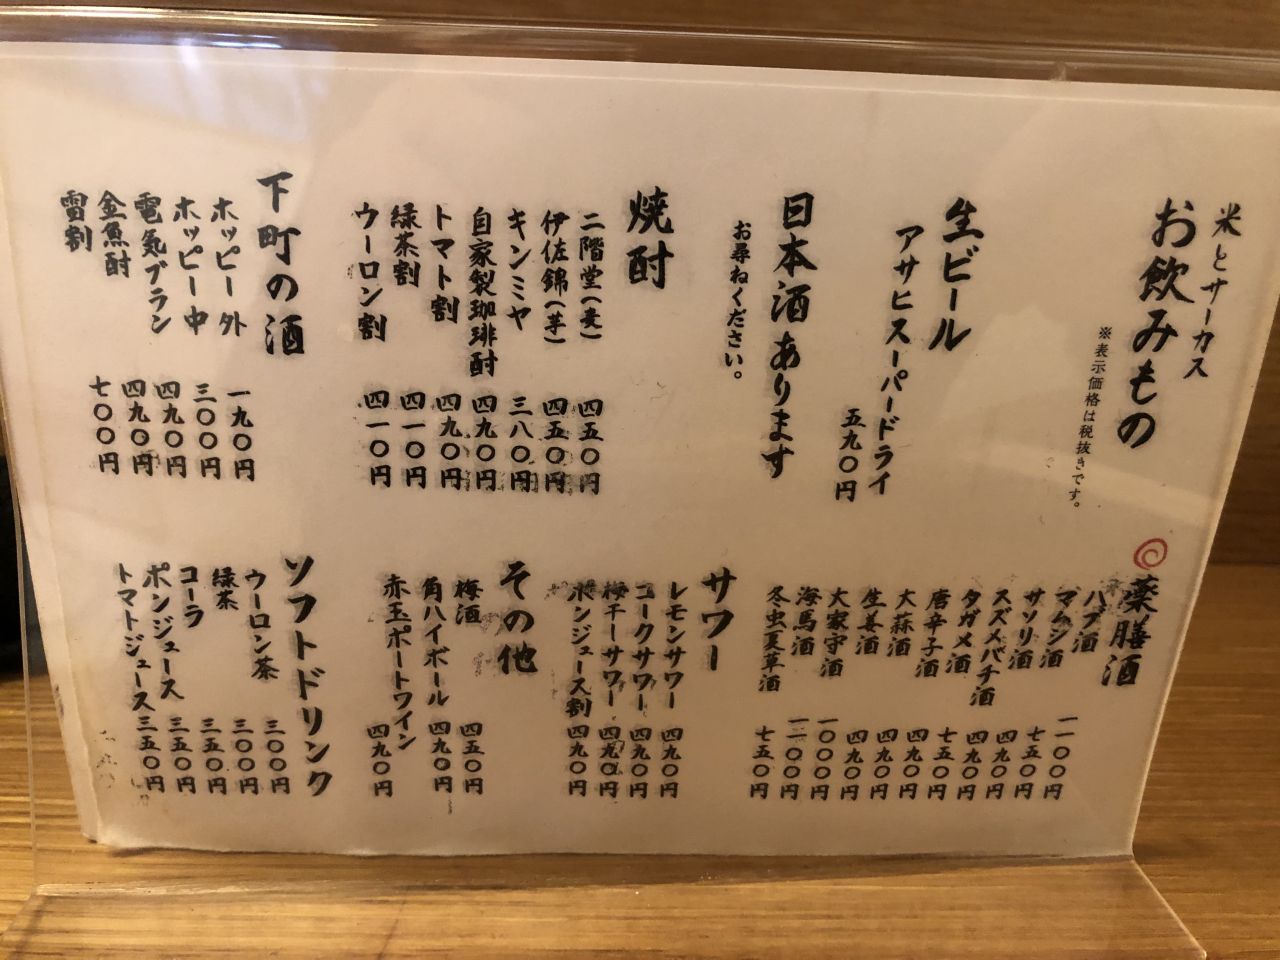 米とサーカス
お飲みもの
※表示価格は税抜きです。
生ビール
アサヒスーパードライ
五九〇円
日本酒あります
お尋ねください。
焼酎
二階堂(麦) 四五〇円
伊佐錦(芋) 四五〇円
キンミヤ 三八〇円
自家製珈琲酎 四九〇円
トマト割 四九〇円
緑茶割 四一〇円
ウーロン割 四一〇円
下町の酒
ホッピー外 一九〇円
ホッピー中 三〇〇円
電気ブラン 四九〇円
金魚酎 四九〇円
七〇〇円
薬膳酒
ハブ酒 一一〇〇円
マムシ酒 七五〇円
サソリ酒 四九〇円
スズメバチ酒 四九〇円
タガメ酒 七五〇円
唐辛子酒 四九〇円
大蒜酒 四九〇円
生姜酒 四九〇円
大家守酒 一〇〇〇円
海馬酒 一一〇〇円
冬虫夏草酒 七五〇円
サワー
レモンサワー 四九〇円
コークサワー 四九〇円
梅干ーサワー 四九〇円
ポンジュース割 四九〇円
その他
梅酒 四五〇円
角ハイボール 四九〇円
赤玉ポートワイン 四九〇円
ソフトドリンク
ウーロン茶 三〇〇円
緑茶 三〇〇円
コーラ 三五〇円
ポンジュース 三五〇円
トマトジュース 三五〇円